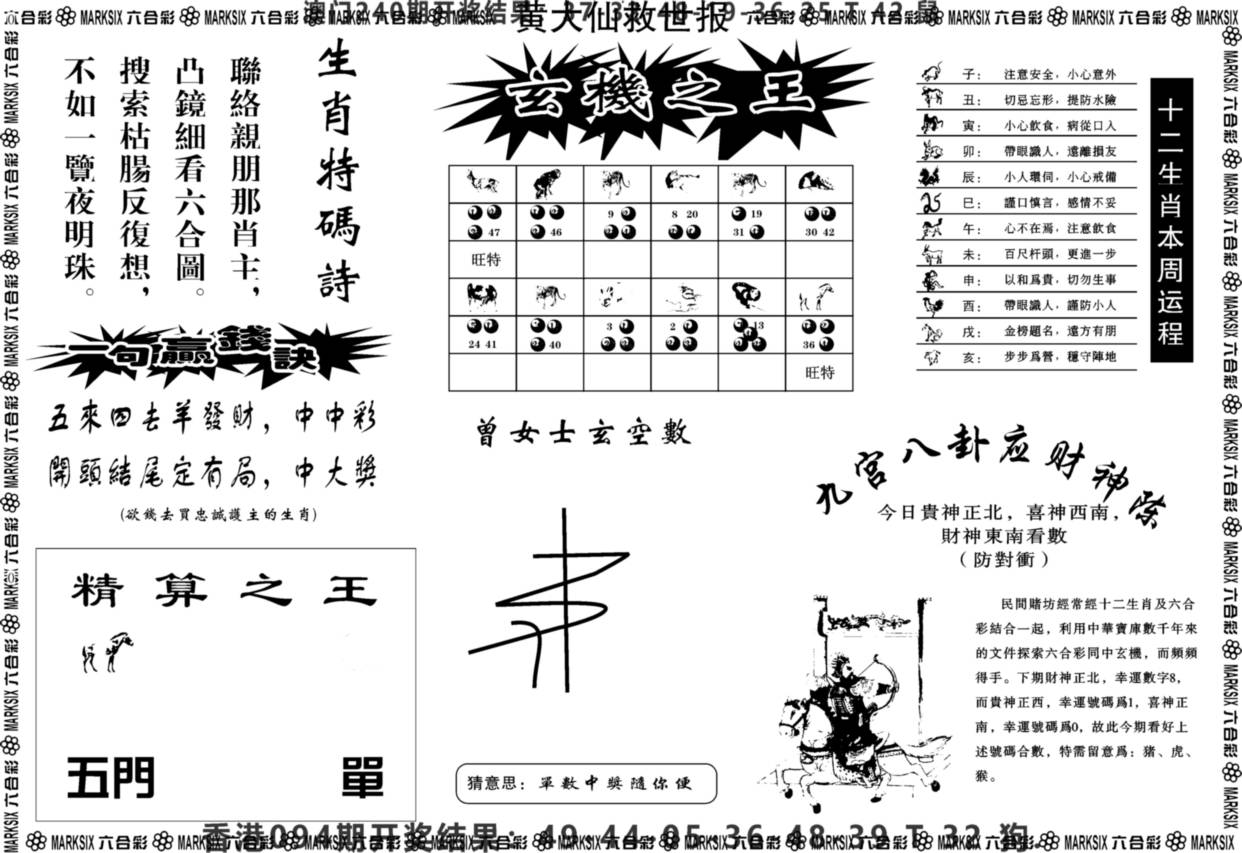 澳门240期开奖结果
黄大仙救世报
MARKSIX 六合彩
生肖特碼詩
聯絡親朋那肖主，
凸鏡細看六合圖。
搜索枯腸反復想，
不如一覽夜明珠。
玄機之王
47 46 9 8 20 19 31 30 42
旺特
24 41 40 3 2 13 36
旺特
十二生肖本周运程
子： 注意安全，小心意外
丑： 切忌忘形，提防水險
寅： 小心飲食，病從口入
卯： 帶眼識人，遠離損友
辰： 小人環伺，小心戒備
巳： 謹口慎言，感情不妥
午： 心不在焉，注意飲食
未： 百尺杆頭，更進一步
申： 以和爲貴，切勿生事
酉： 帶眼識人，謹防小人
戌： 金榜題名，遠方有朋
亥： 步步爲營，穩守陣地
一句贏錢訣
五來四去羊發財，中中彩
開頭結尾定有局，中大獎
(欲錢去買忠誠護主的生肖)
精算之王
五門 單
曾女士玄空數
猜意思：單數中獎隨你便
九宮八卦应财神
今日貴神正北，喜神西南，
財神東南看數
（防對衝）
民間賭坊經常經十二生肖及六合
彩結合一起，利用中華寶庫數千年來
的文件探索六合彩同中玄機，而頻頻
得手。下期財神正北，幸運數字8，
而貴神正西，幸運號碼爲1，喜神正
南，幸運號碼爲0，故此今期看好上
述號碼合數，特需留意爲：豬、虎、
猴。
香港094期开奖结果：49 44 05 36 48 39 T 32 狗